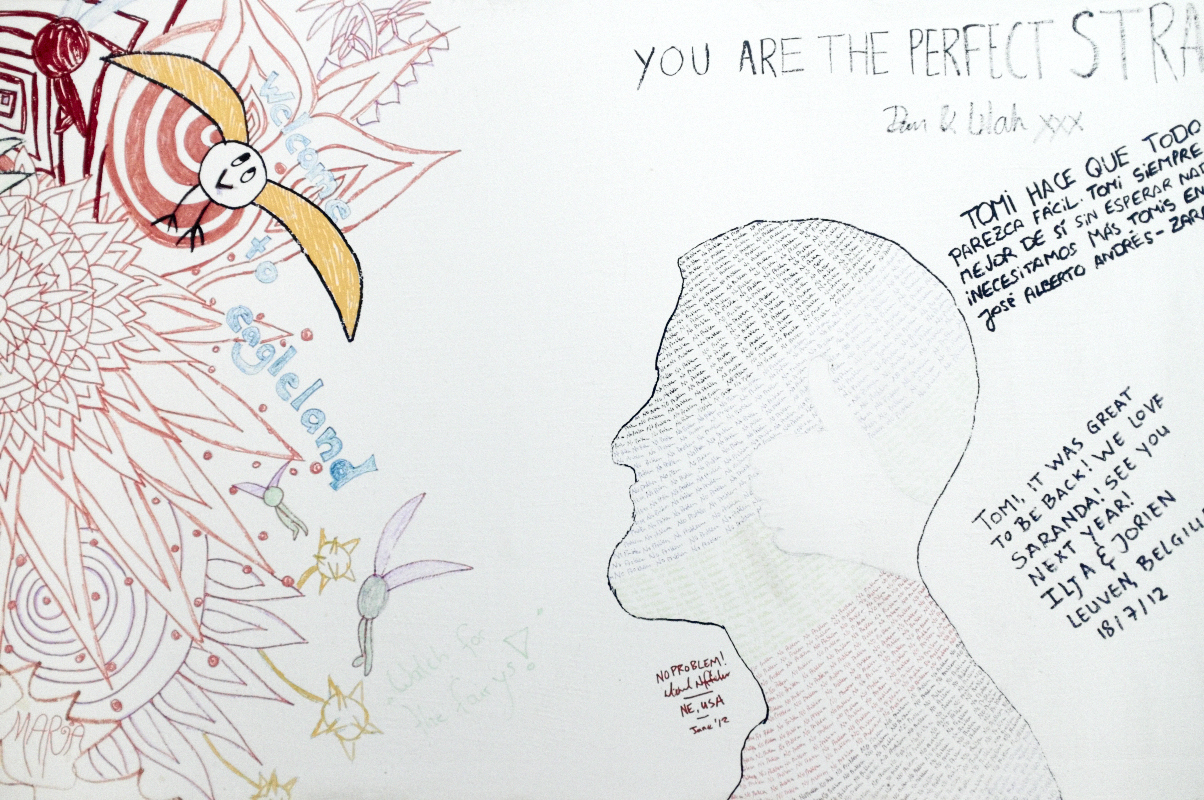 Welcome
to
eagleland
Watch for
the fairys!
MARIA
YOU ARE THE PERFECT STRA
Dan & Lilah XXX
TOMI HACE QUE TODO
PAREZCA FÁCIL. TOMI SIEMPRE
MEJOR DE SÍ SIN ESPERAR NAD
¡NECESITAMOS MÁS TOMIS EN
JOSÉ ALBERTO ANDRÉS - ZARA
TOMI, IT WAS GREAT
TO BE BACK! WE LOVE
SARANDA! SEE YOU
NEXT YEAR!
ILJA & JORIEN
LEUVEN, BELGIU
18/7/12
No Problem
NO PROBLEM!
NE, USA
June '12